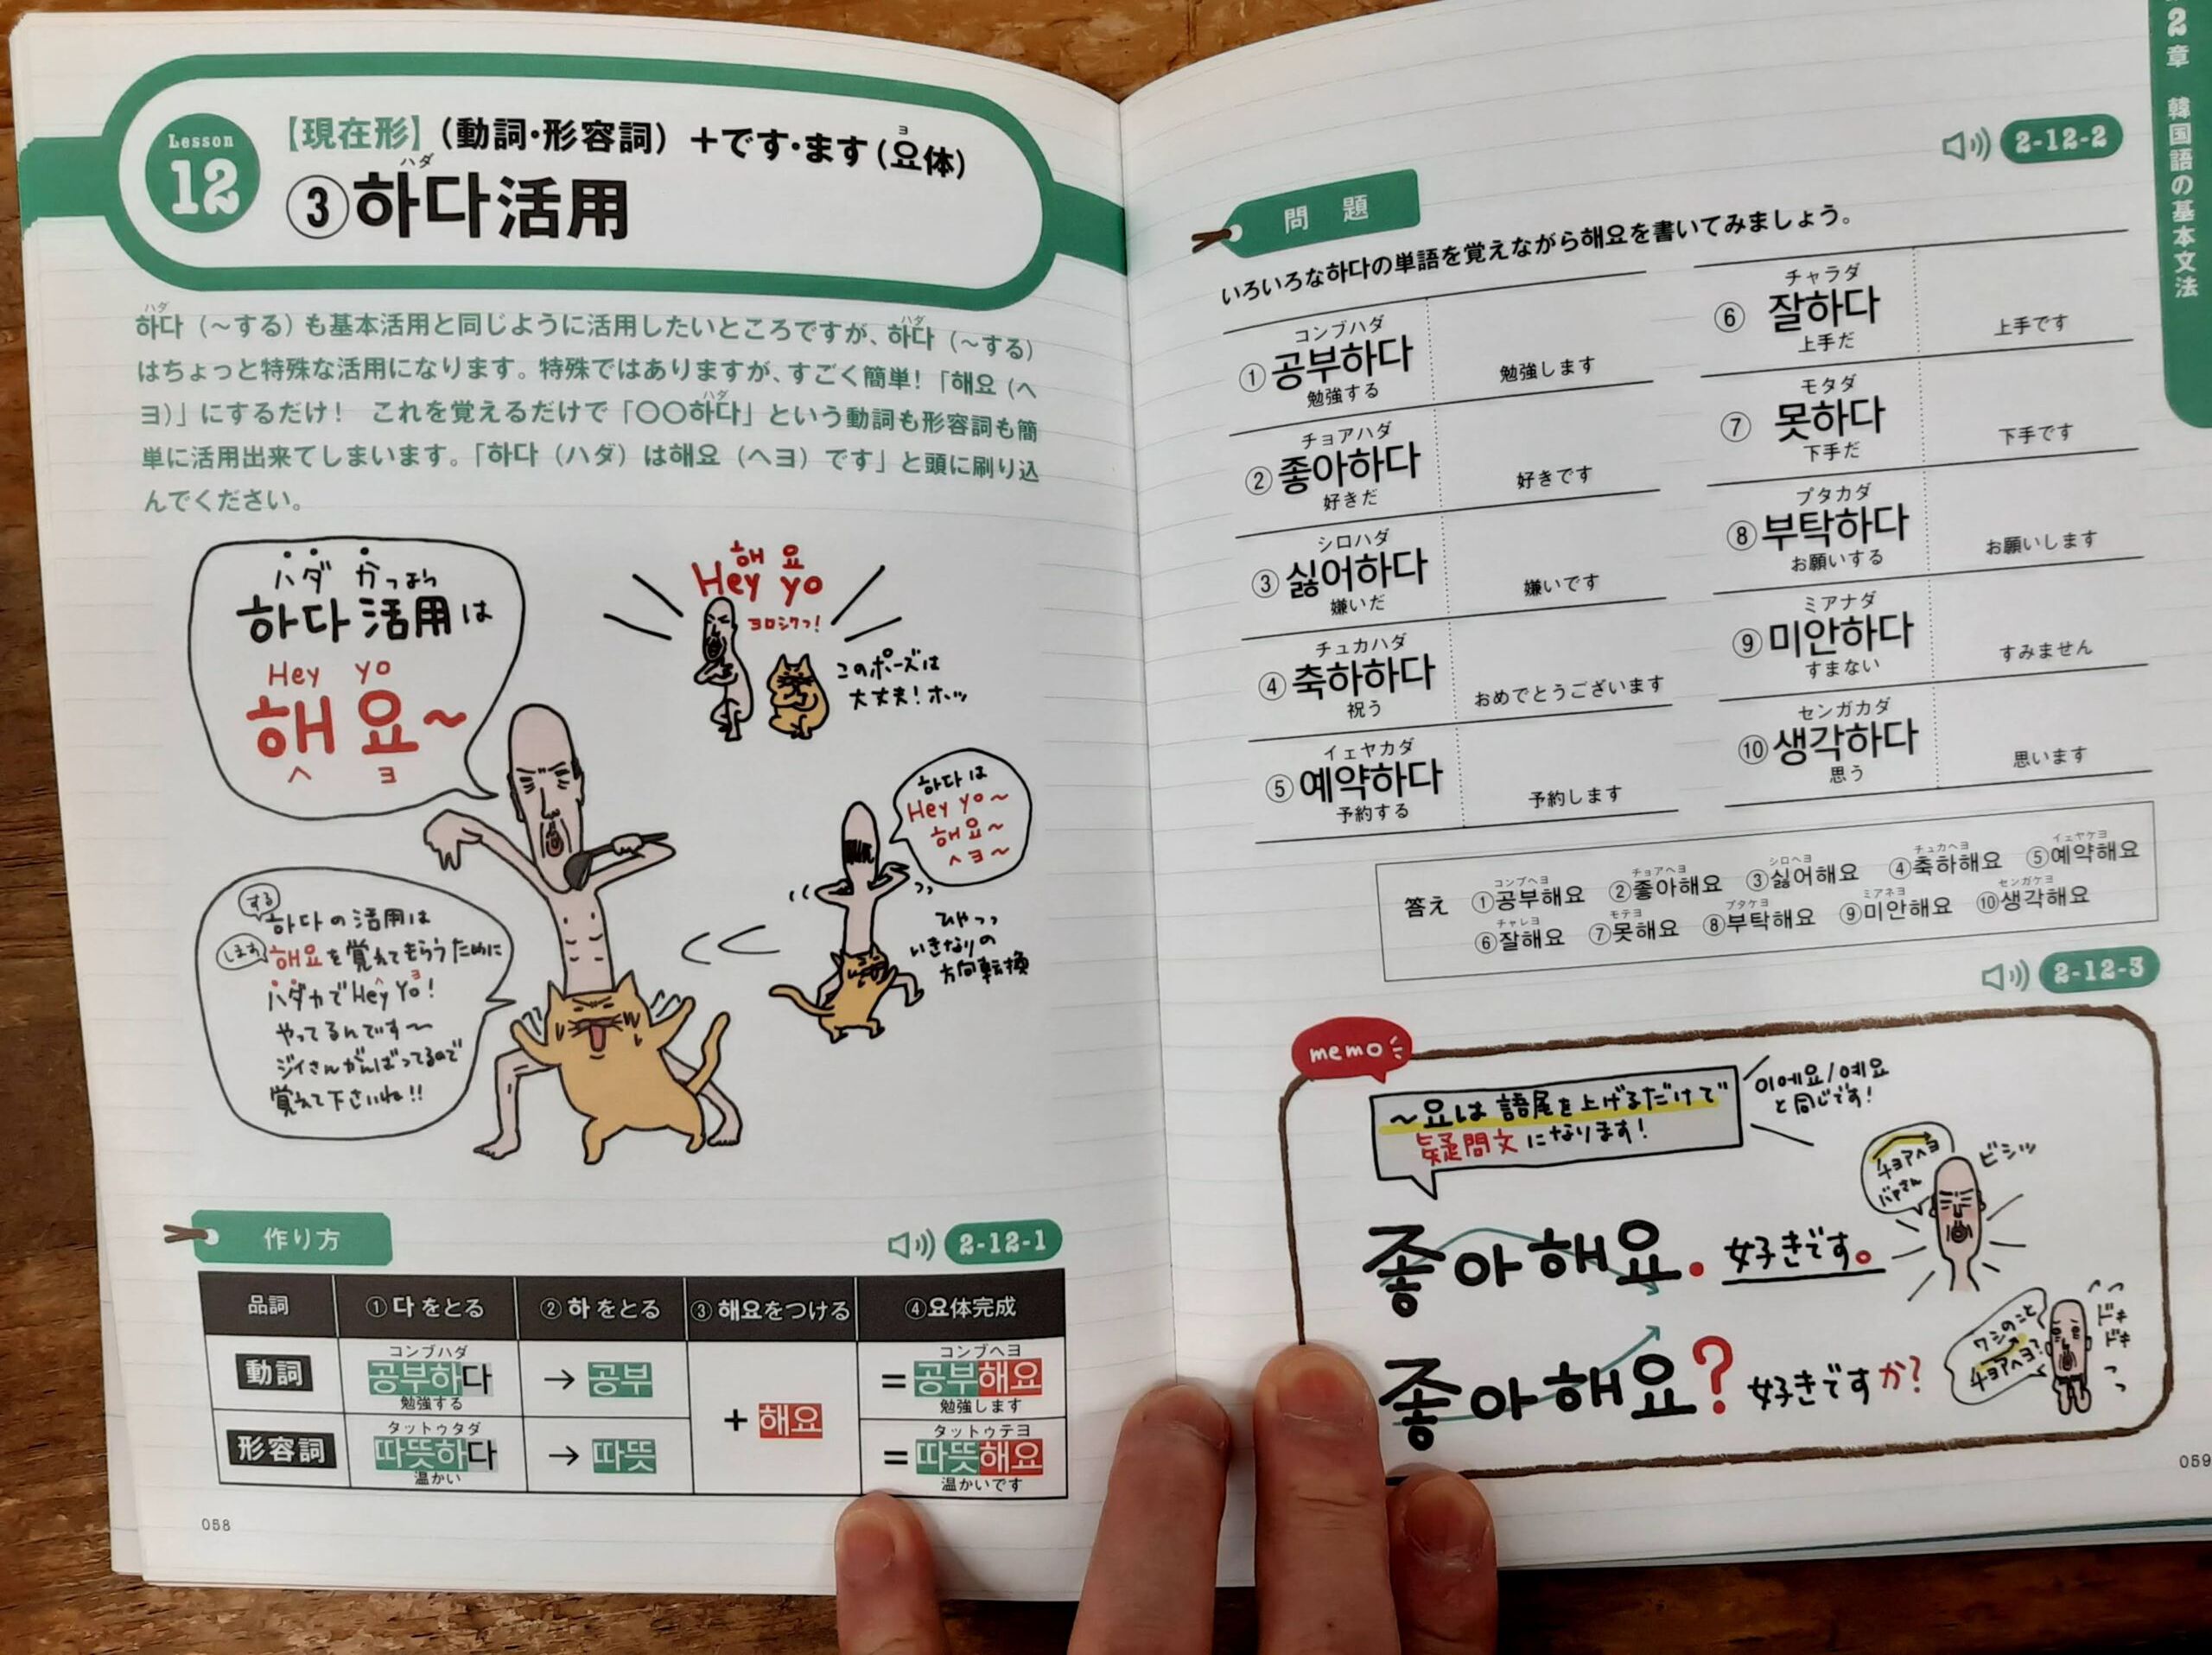 Lesson
12
【現在形】(動詞・形容詞)+です・ます(요体)
ヨ
ハダ
③하다活用
ハダ
ハダ
하다(〜する)も基本活用と同じように活用したいところですが、하다(〜する)
はちょっと特殊な活用になります。特殊ではありますが、すごく簡単!「해요(ヘ
ハダ
ヨ)」にするだけ! これを覚えるだけで「〇〇하다」という動詞も形容詞も簡
単に活用出来てしまいます。「하다(ハダ)は해요(ヘヨ)です」と頭に刷り込
んでください。
ハダ かつよう
하다 活用は
Hey yo
해요〜
ヘ ヨ
해 요
Hey yo
ヨロシクっ!
このポーズは
大丈夫!ホッ
하다は
Hey yo〜
해요〜
ヘヨ〜
ひゃっっ
いきなりの
方向転換
する
하다の活用は
します
해요を覚えてもらうために
ヘ ヨ
ハダカでHey Yo!
やってるんです〜
ジイさんがんばってるので
覚えて下さいね!!
作り方
2-12-1
品詞 ①다をとる ②하をとる ③해요をつける ④요体完成
コンブハダ コンブヘヨ
動詞 공부하다 → 공부 = 공부해요
勉強する 勉強します
+ 해요
タットゥタダ タットゥテヨ
形容詞 따뜻하다 → 따뜻 = 따뜻해요
温かい 温かいです
058
2章 韓国語の基本文法
2-12-2
問 題
いろいろな하다の単語を覚えながら해요を書いてみましょう。
コンブハダ
① 공부하다
勉強する
勉強します
チョアハダ
② 좋아하다
好きだ
好きです
シロハダ
③ 싫어하다
嫌いだ
嫌いです
チュカハダ
④ 축하하다
祝う
おめでとうございます
イェヤカダ
⑤ 예약하다
予約する
予約します
チャラダ
⑥ 잘하다
上手だ
上手です
モタダ
⑦ 못하다
下手だ
下手です
プタカダ
⑧ 부탁하다
お願いする
お願いします
ミアナダ
⑨ 미안하다
すまない
すみません
センガカダ
⑩ 생각하다
思う
思います
コンブヘヨ チョアヘヨ シロヘヨ チュカヘヨ イェヤケヨ
答え ①공부해요 ②좋아해요 ③싫어해요 ④축하해요 ⑤예약해요
チャレヨ モテヨ プタケヨ ミアネヨ センガケヨ
⑥잘해요 ⑦못해요 ⑧부탁해요 ⑨미안해요 ⑩생각해요
2-12-3
memo
〜요は語尾を上げるだけで
疑問文になります!
이에요/예요
と同じです!
チョアヘヨ
バァさん
ビシッ
좋아해요. 好きです。
ワシのこと
チョアヘヨ?
ドキ
ドキ
좋아해요? 好きですか?
059